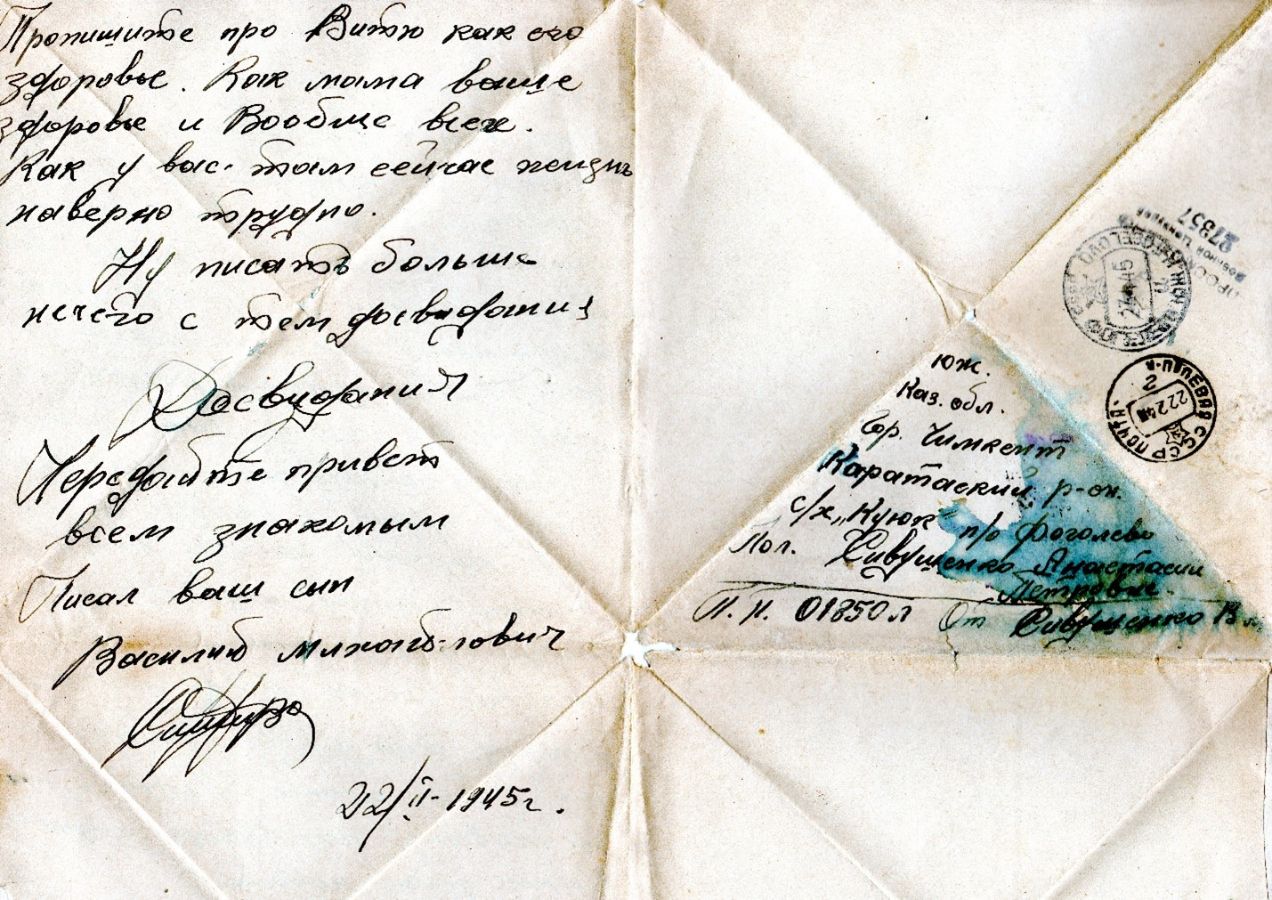 Пропишите про Витю как его
здоровье. Как мама ваше
здоровье и Вообще всех.
Как у вас там сейчас жизнь
наверно трудно.
Ну писать больше
нечего с тем досвидания
Досвидания
Передайте привет
всем знакомым
Писал ваш сын
Василий
22/II-1945г.
27857
Военной Цензурой
27 45
ПОЛЕВАЯ ПОЧТА
СССР
2
22.2.45
Юж.
Каз. обл.
Гор. Чимкент
Каратаский р-он.
с/х „Куюк" п/о Фоголево
Пол. Сивущенко Анастасии
Петровне.
П. П. 01850 л От Сивущенко В